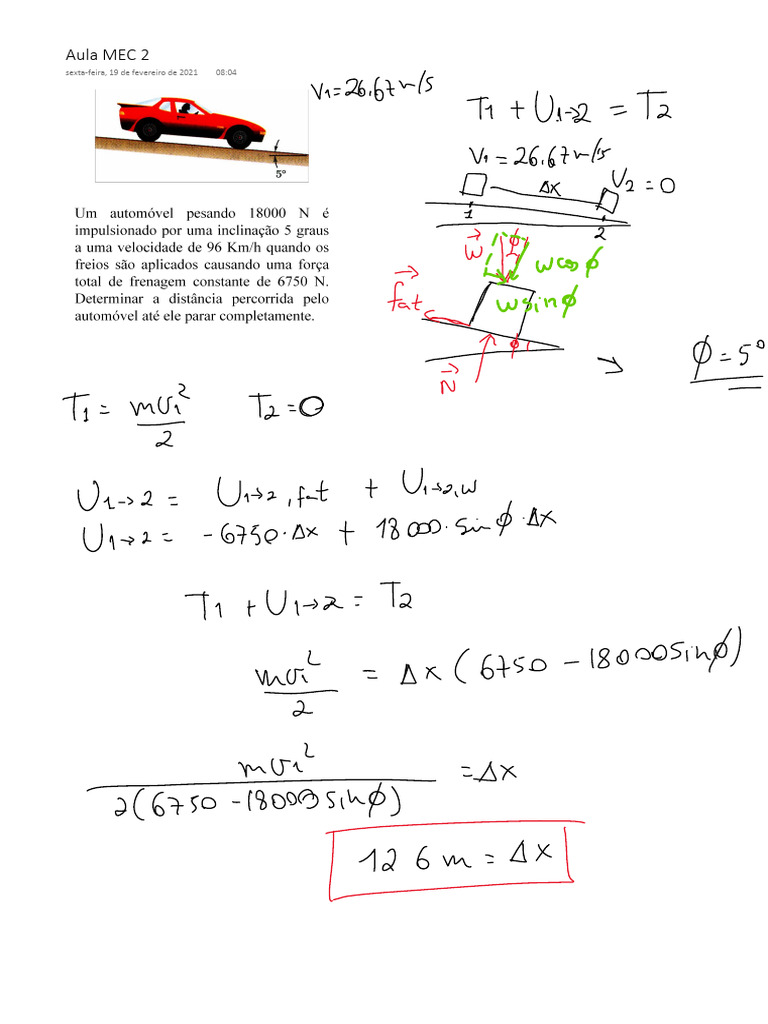 Aula MEC 2
sexta-feira, 19 de fevereiro de 2021 08:04
5°
Um automóvel pesando 18000 N é
impulsionado por uma inclinação 5 graus
a uma velocidade de 96 Km/h quando os
freios são aplicados causando uma força
total de frenagem constante de 6750 N.
Determinar a distância percorrida pelo
automóvel até ele parar completamente.
V1=26.67m/s
T1 + U1→2 = T2
V1 = 26.67m/s
Δx
U2=0
1
2
W
ϕ
wcosϕ
fat
wsinϕ
ϕ
N
→
ϕ=5°
T1 = mv1²/2
T2=0
U1→2 = U1→2,fat + U1→2,w
U1→2 = -6750·Δx + 18000·sinϕ·Δx
T1 + U1→2 = T2
mv1²/2 = Δx(6750 -18000sinϕ)
mv1²/2(6750-18000sinϕ) =Δx
126m=Δx